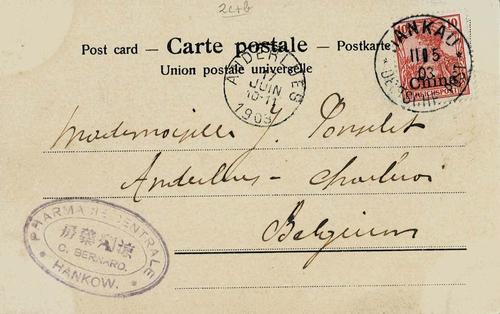 2c+b
Post card — Carte postale — Postkarte
Union postale universelle
ANDERLUES
17
JUIN
10-11
1903
HANKAU
11 5
03
DEUTSCHE POST
10
China
Mademoiselle J. Ponselet
Anderlues - Charleroi
Belgium
PHARMACIE CENTRALE
房藥利濟
C. BERNARD.
HANKOW.